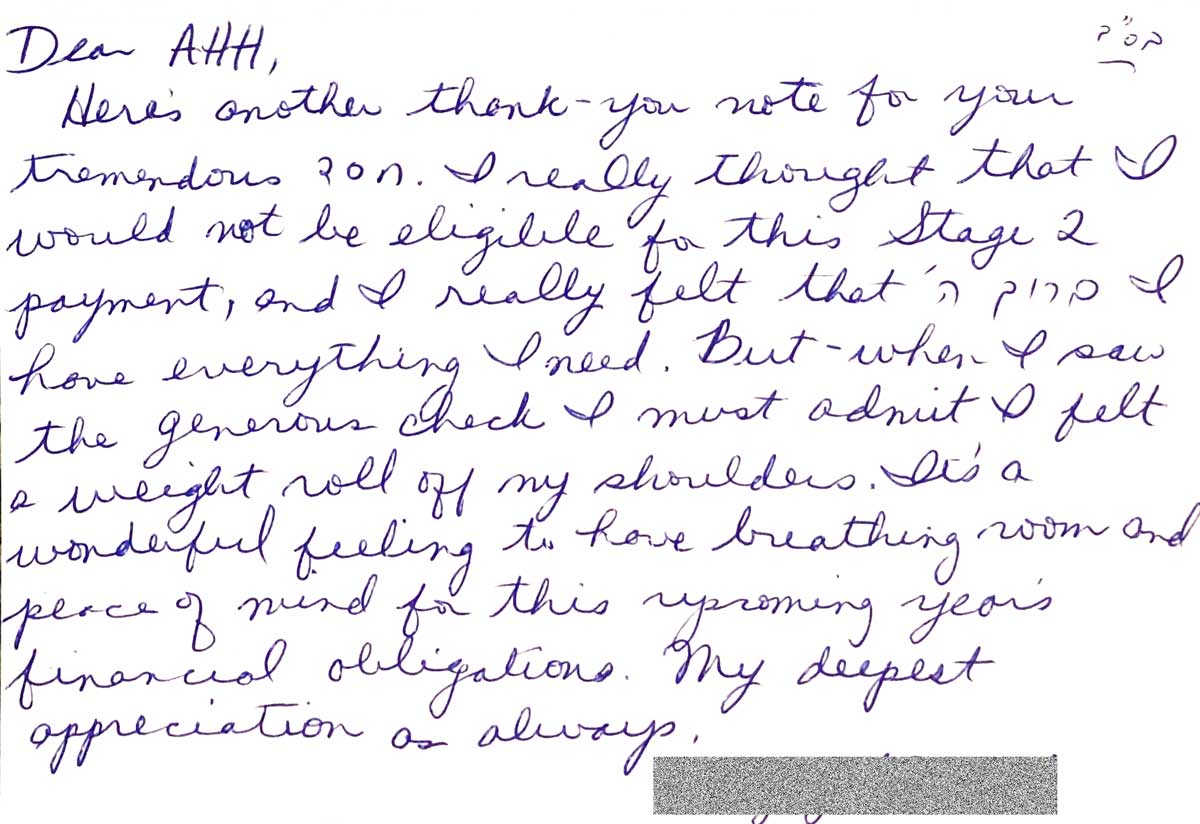 בס"ד
Dear AHH,
Here's another thank-you note for your
tremendous חסד. I really thought that I
would not be eligible for this Stage 2
payment, and I really felt that ברוך ה' I
have everything I need. But - when I saw
the generous check I must admit I felt
a weight roll off my shoulders. It's a
wonderful feeling to have breathing room and
peace of mind for this upcoming year's
financial obligations. My deepest
appreciation as always,